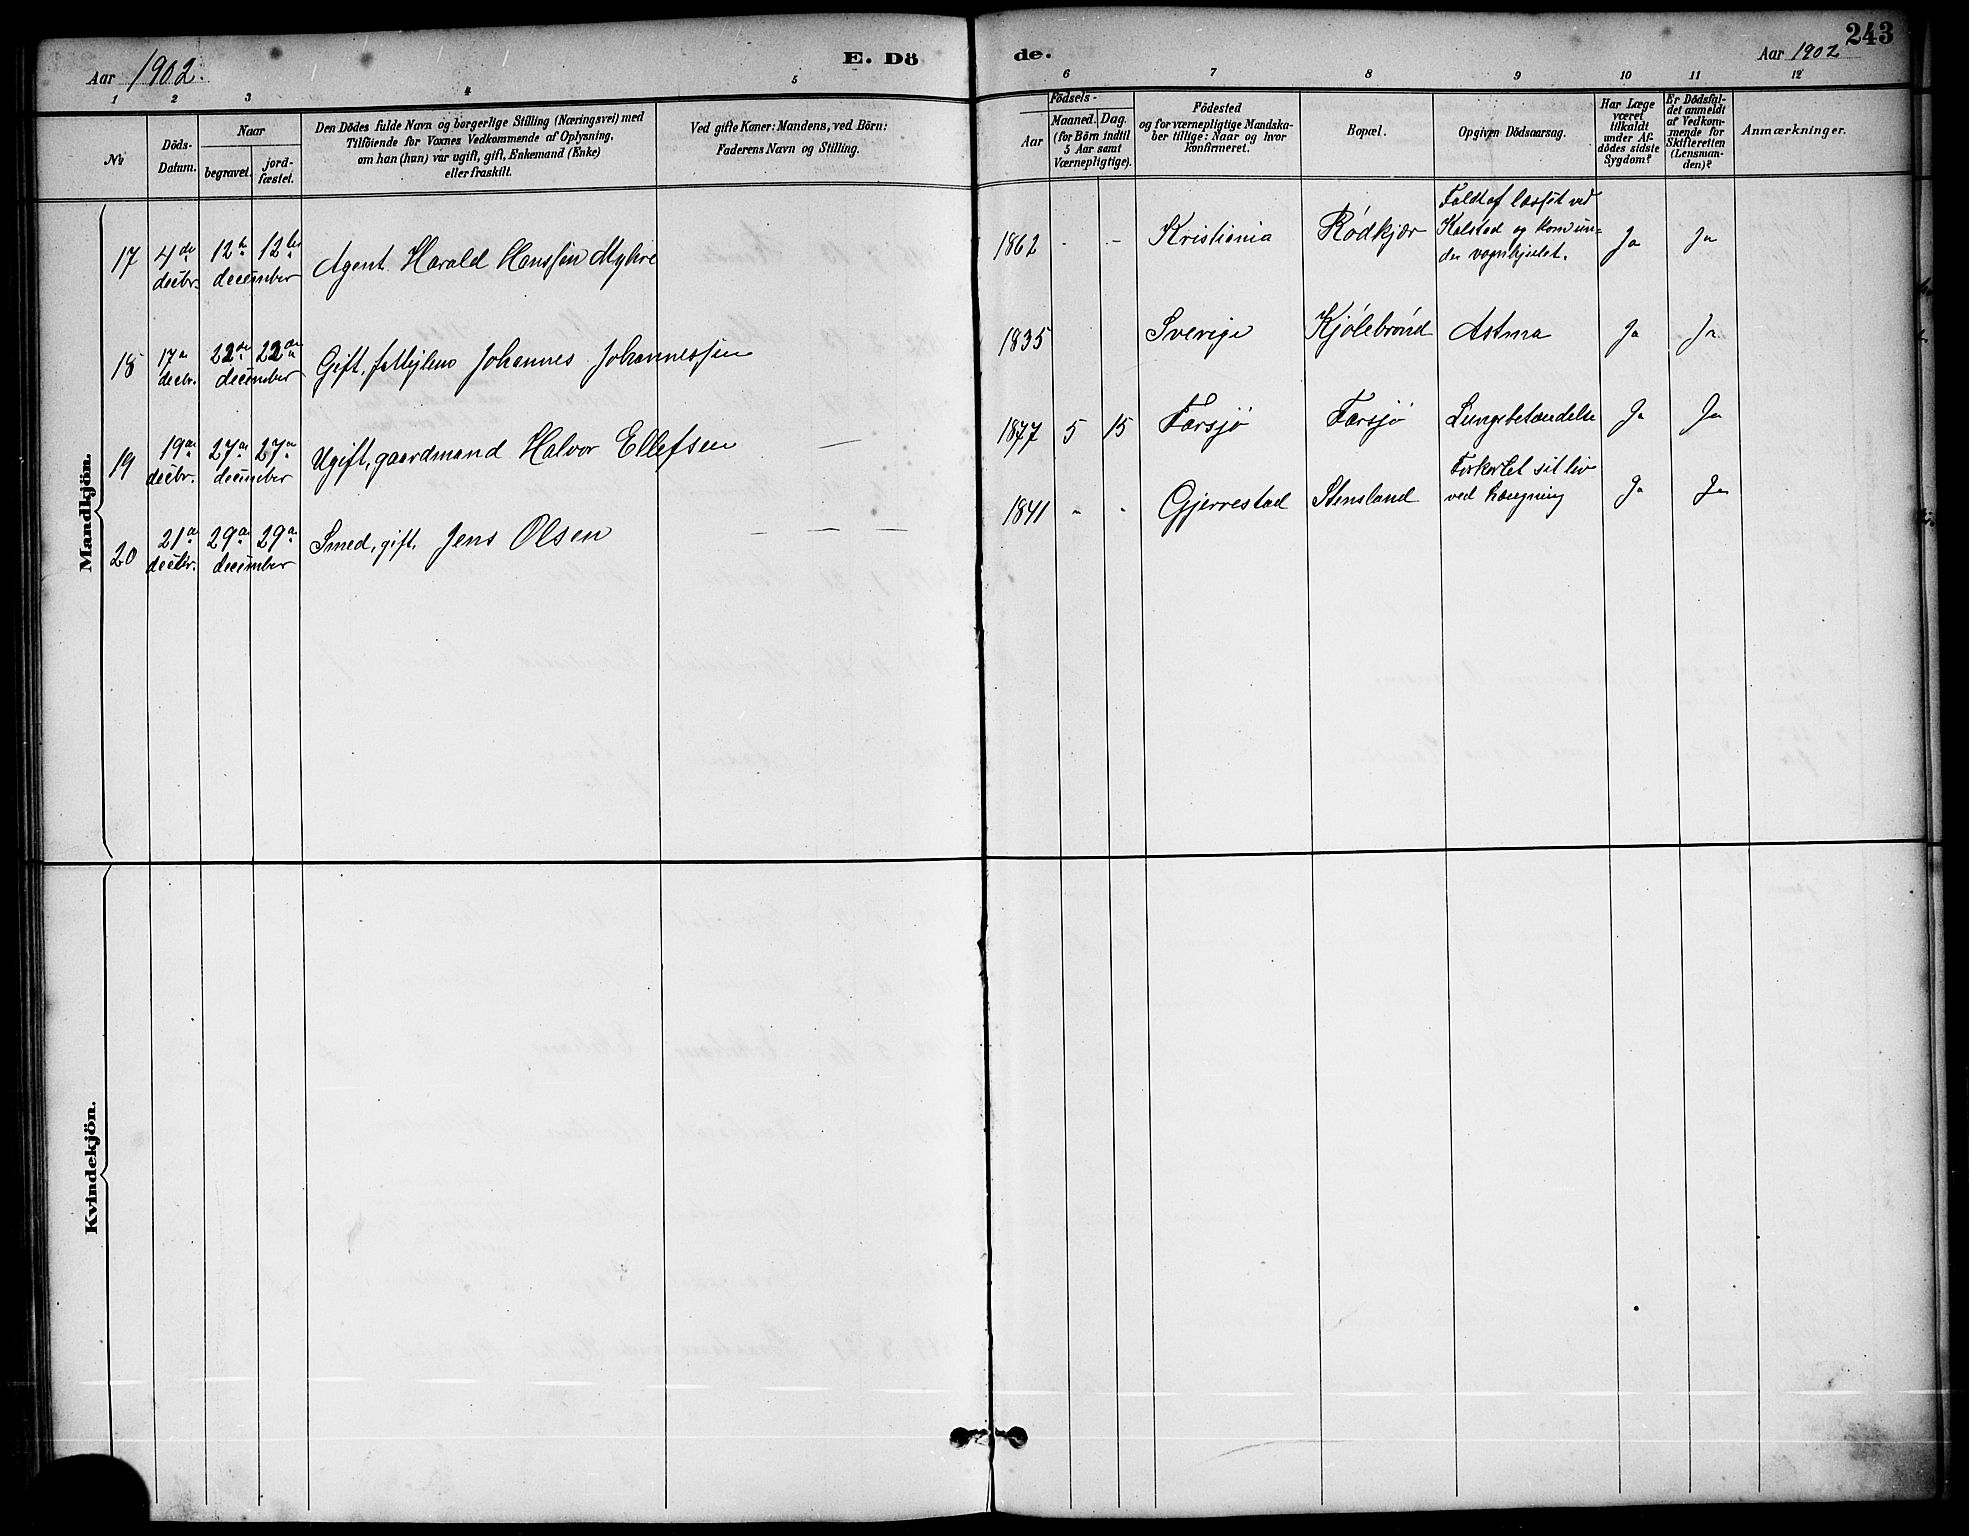 Aar 1902.
E. Dö
de.
Aar 1902
243
1 2 3 4 5 6 7 8 9 10 11 12
No
Döds-
Datum.
Naar
begravet.
jord-
fæstet.
Den Dödes fulde Navn og borgerlige Stilling (Næringsvei) med
Tilföiende for Voxnes Vedkommende af Oplysning,
om han (hun) var ugift, gift, Enkemand (Enke)
eller fraskilt.
Ved gifte Koner: Mandens, ved Börn:
Faderens Navn og Stilling.
Födsels-
Aar
Maaned.
Dag.
(for Börn indtil
5 Aar samt
Værnepligtige).
Födested
og for værnepligtige Mandska-
ber tillige: Naar og hvor
konfirmeret.
Bopæl.
Opgiven Dödsaarsag.
Har Læge
været
tilkaldt
under Af-
dödes sidste
Sygdom?
Er Dödsfal-
det anmeldt
af Vedkom-
mende for
Skifteretten
(Lensman-
den)?
Anmærkninger.
Mandkjön.
17
4de
decbr.
12te 12te
december
Agent Harald Hanssen Myhre
1862 - -
Kristiania
Rödkjær
Faldt af læsset ved
Kalstad og kom un-
der vognhjulet.
Ja
Ja
18
17de
decbr.
22de 22de
december
Gift, Johannes Johannessen
1835
Sverige
Kjölebrönd
Astma
Ja
Ja
19
19de
decbr.
27de 27de
december
Ugift, gaardmand Halvor Ellefsen
—
1877 5 15
Farsjø
Farsjø
Lungebetændelse
Ja
Ja
20
21de
decbr.
29de 29de
december
Smed, gift, Jens Olsen
— — —
1841 - -
Gjerrestad
Stensland
Forkortet sit liv
ved hængning
Ja
Ja
Kvindekjön.